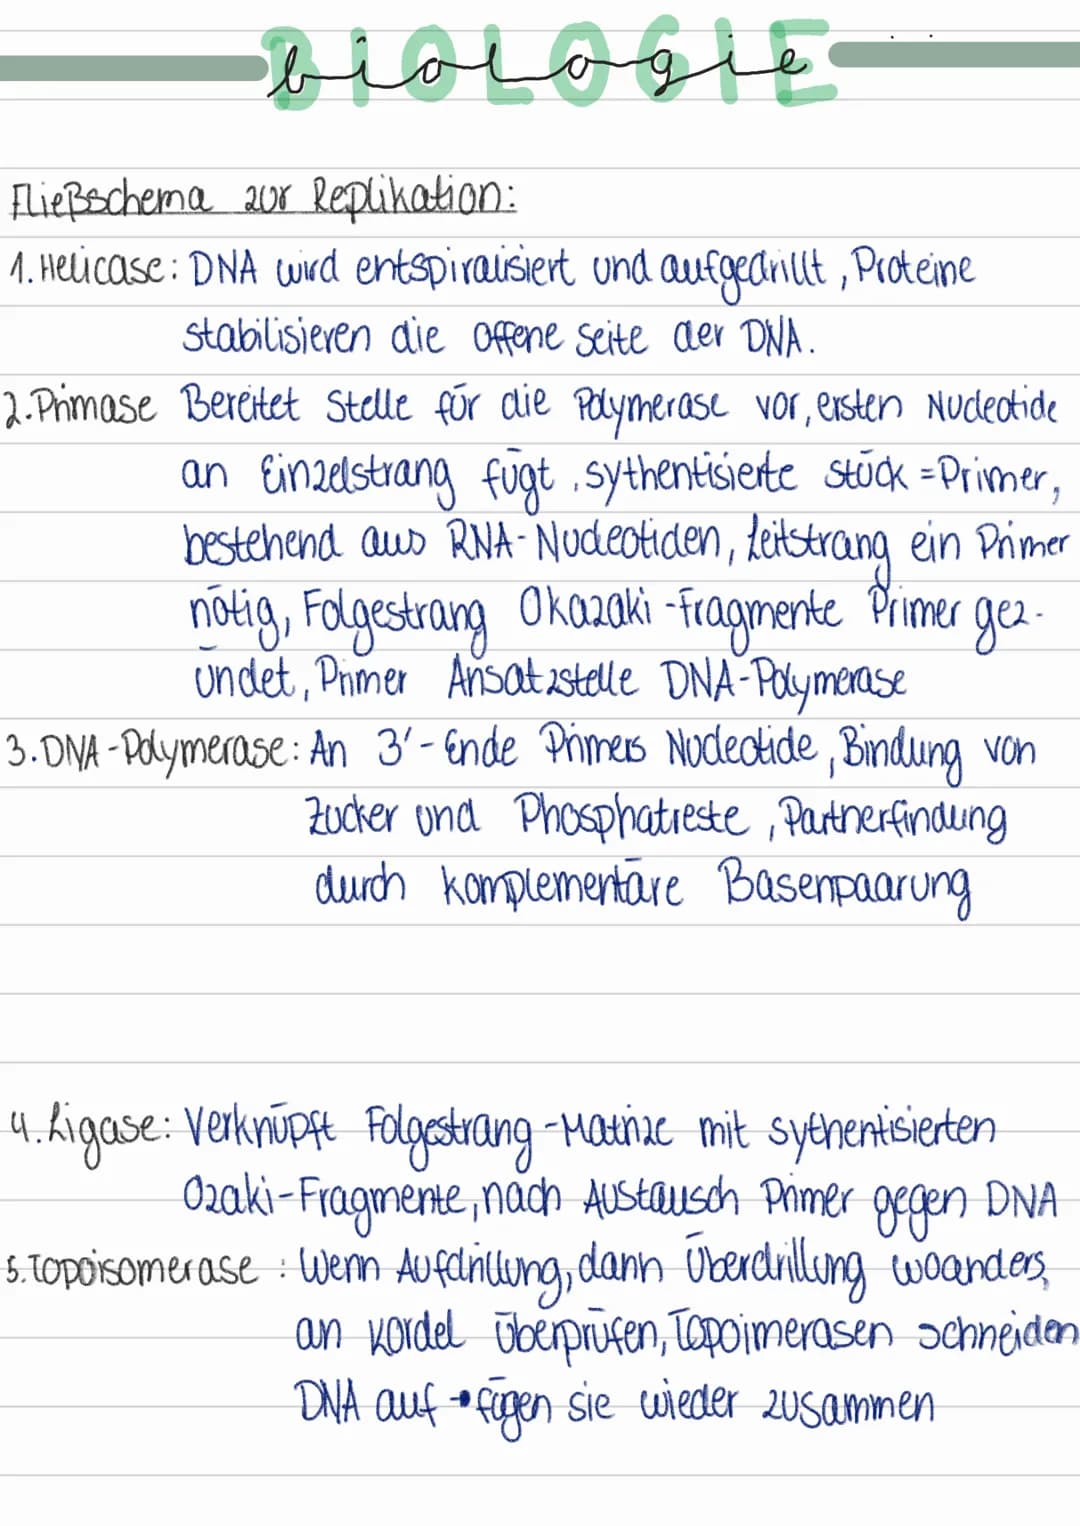 BIOLOGIE
biologie
Fließschema zur Replikation:
1. Helicase: DNA wird entspiralisiert und aufgedrillt, Proteine
stabilisieren die offene Seite der DNA.
2. Primase Bereitet Stelle für die Polymerase vor, ersten Nucleotide
an Einzelstrang fügt, sythentisierte Stück = Primer,
bestehend aus RNA-Nucleotiden, Leitstrang ein Primer
nötig, Folgestrang Okazaki-Fragmente Primer gez-
ündet, Primer Ansatzstelle DNA-Polymerase
3. DNA-Polymerase: An 3'-Ende Primers Nucleotide, Bindung von
Zucker und Phosphatreste, Partnerfindung
durch komplementäre Basenpaarung
4. Ligase: Verknüpft Folgestrang-Matrize mit sythentisierten
Ozaki-Fragmente, nach Austausch Primer gegen DNA
5. Topoisomerase: Wenn Aufdrillung, dann Überdrillung woanders,
an Kordel überprüfen, Topoimerasen schneiden
DNA auf → fügen sie wieder zusammen